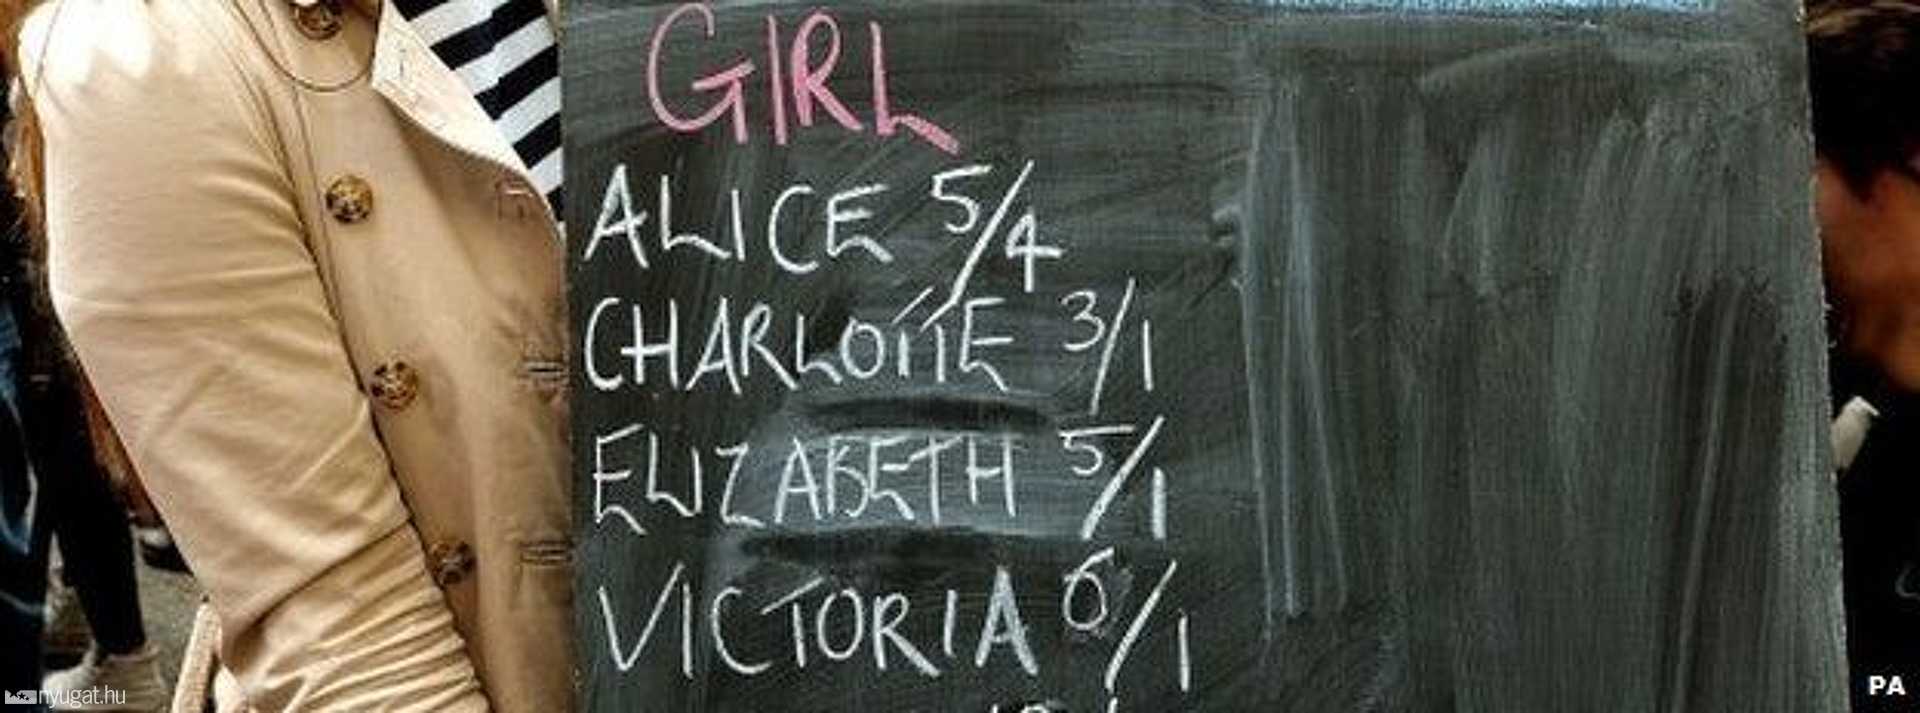 GIRL
ALICE 5/4
CHARLOTTE 3/1
ELIZABETH 5/1
VICTORIA 6/1
nyugat.hu
PA